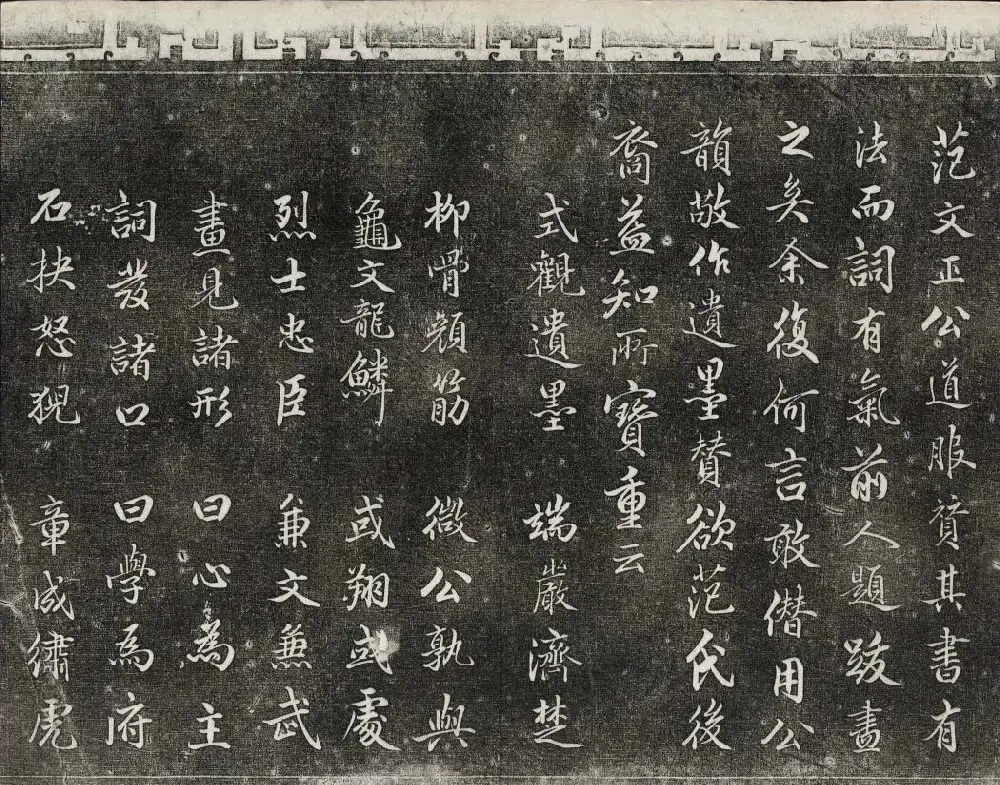 范文正公道服贊其書有
法而詞有氣前人題跋盡
之矣余復何言敢僣用公
韻敬作遺墨贊欲范氏後
裔益知所寶重云
式觀遺墨 端嚴濟楚
柳骨顏筋 微公孰與
龜文龍鱗 或翔或處
烈士忠臣 兼文兼武
畫見諸形 曰心為主
詞發諸口 曰學為府
石抉怒猊 章成繡虎